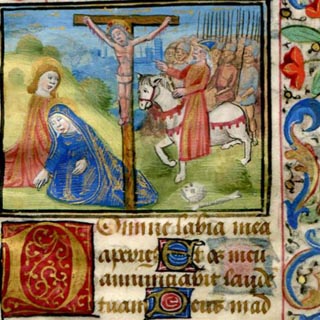 Domine labia mea
aperies Et os meu
annunciabit laude
tuam Deus in ad